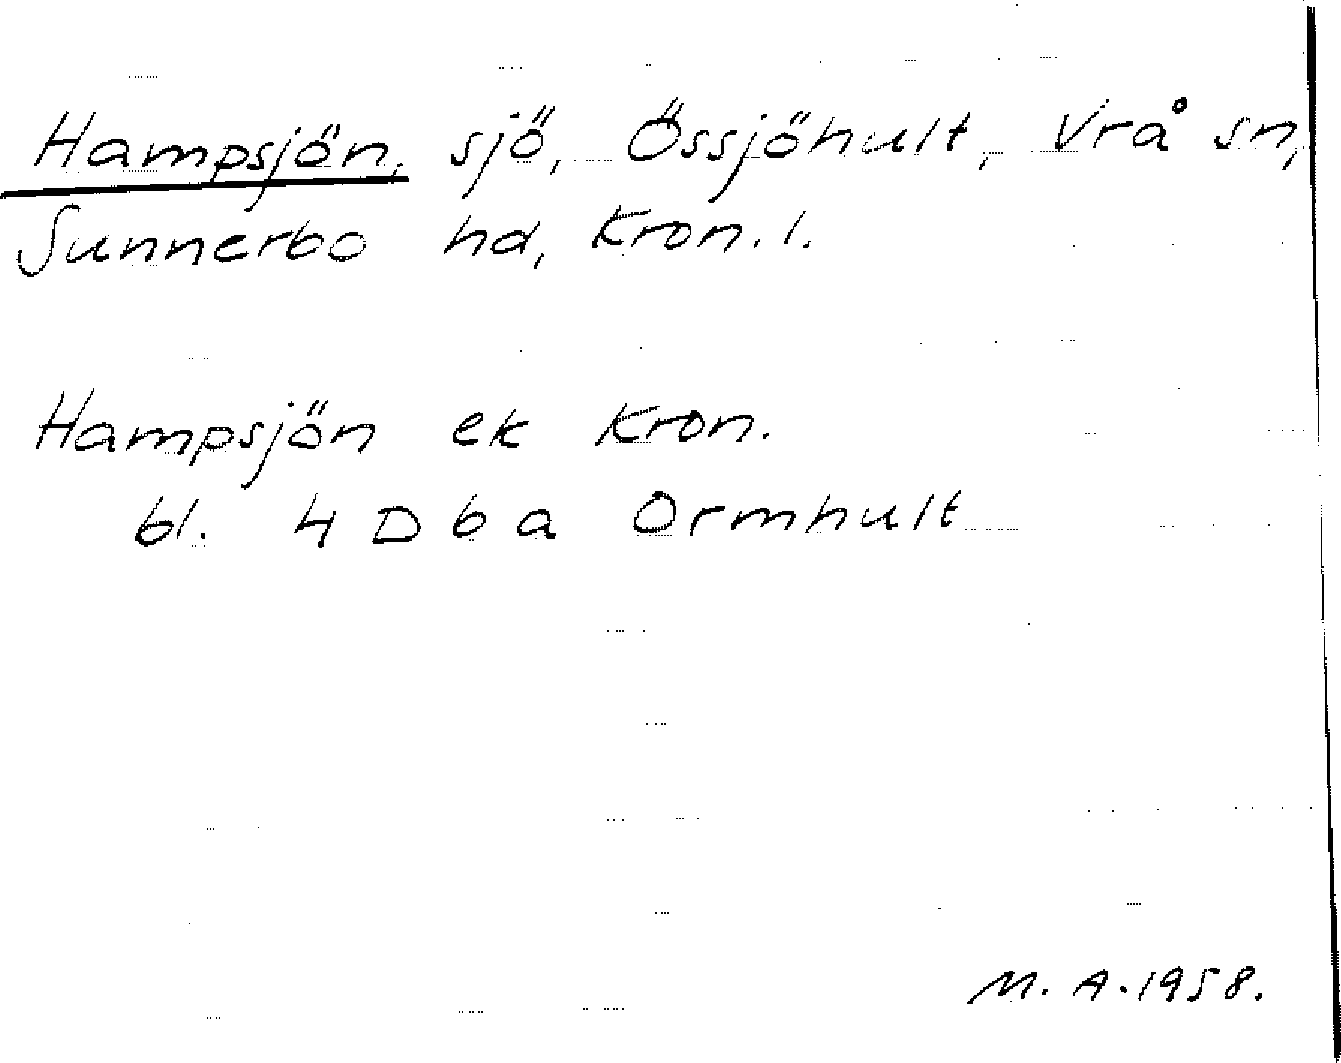 Hampsjön, sjö, Össjöhult, Vrå sn,
Sunnerbo hd, Kron. l.
Hampsjön ek Kron.
bl. 4 D 6 a Ormhult
M. A. 1958.